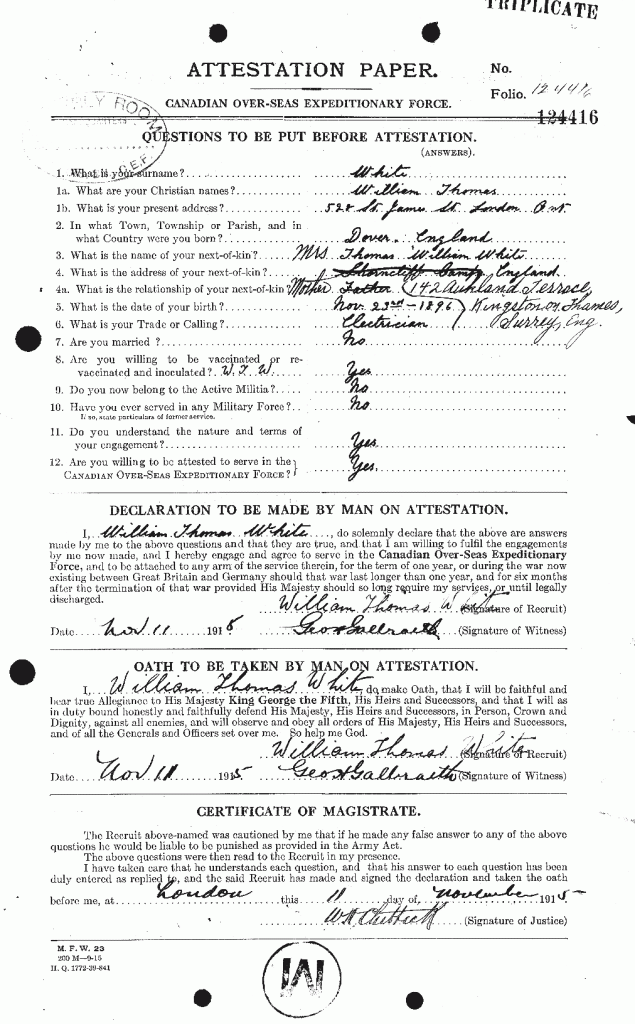 TRIPLICATE
ATTESTATION PAPER.
No.
Folio. 124416
CANADIAN OVER-SEAS EXPEDITIONARY FORCE.
124416
ROOM
C.E.F.
QUESTIONS TO BE PUT BEFORE ATTESTATION.
(ANSWERS).
1. What is your surname? White
1a. What are your Christian names? William Thomas
1b. What is your present address? 528 St. James St. London Ont.
2. In what Town, Township or Parish, and in
what Country were you born? Dover. England
3. What is the name of your next-of-kin? Mrs Thomas William White
4. What is the address of your next-of-kin? Shorncliff Camp, England
4a. What is the relationship of your next-of-kin Mother Father (142 Terrace,
5. What is the date of your birth? Nov. 23rd - 1896 Kingston on Thames,
6. What is your Trade or Calling? Electrician Surrey, Eng.
7. Are you married? No
8. Are you willing to be vaccinated or re-
vaccinated and inoculated? W.T.W. Yes
9. Do you now belong to the Active Militia? No
10. Have you ever served in any Military Force? No
If so, state particulars of former service.
11. Do you understand the nature and terms of
your engagement? Yes
12. Are you willing to be attested to serve in the
CANADIAN OVER-SEAS EXPEDITIONARY FORCE? Yes.
DECLARATION TO BE MADE BY MAN ON ATTESTATION.
I, William Thomas White, do solemnly declare that the above are answers
made by me to the above questions and that they are true, and that I am willing to fulfil the engagements
by me now made, and I hereby engage and agree to serve in the Canadian Over-Seas Expeditionary
Force, and to be attached to any arm of the service therein, for the term of one year, or during the war now
existing between Great Britain and Germany should that war last longer than one year, and for six months
after the termination of that war provided His Majesty should so long require my services, or until legally
discharged.
William Thomas White (Signature of Recruit)
Date Nov 11 1915 Geo H Galbraith (Signature of Witness)
OATH TO BE TAKEN BY MAN ON ATTESTATION.
I, William Thomas White, do make Oath, that I will be faithful and
bear true Allegiance to His Majesty King George the Fifth, His Heirs and Successors, and that I will as
in duty bound honestly and faithfully defend His Majesty, His Heirs and Successors, in Person, Crown and
Dignity, against all enemies, and will observe and obey all orders of His Majesty, His Heirs and Successors,
and of all the Generals and Officers set over me. So help me God.
William Thomas White (Signature of Recruit)
Date Nov 11 1915 Geo H Galbraith (Signature of Witness)
CERTIFICATE OF MAGISTRATE.
The Recruit above-named was cautioned by me that if he made any false answer to any of the above
questions he would be liable to be punished as provided in the Army Act.
The above questions were then read to the Recruit in my presence.
I have taken care that he understands each question, and that his answer to each question has been
duly entered as replied to, and the said Recruit has made and signed the declaration and taken the oath
before me, at London this 11 day of November 1915
(Signature of Justice)
M. F. W. 23
200 M—9-15
H. Q. 1772-39-841
M